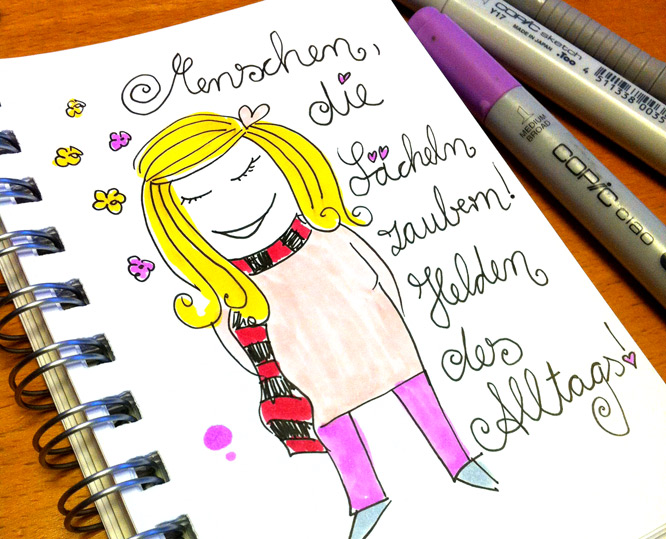 Menschen,
die
Lächeln
zaubern!
Helden
des
Alltags!
COPIC sketch
Y17
MADE IN JAPAN
.Too
1
MEDIUM
BROAD
COPIC ciao